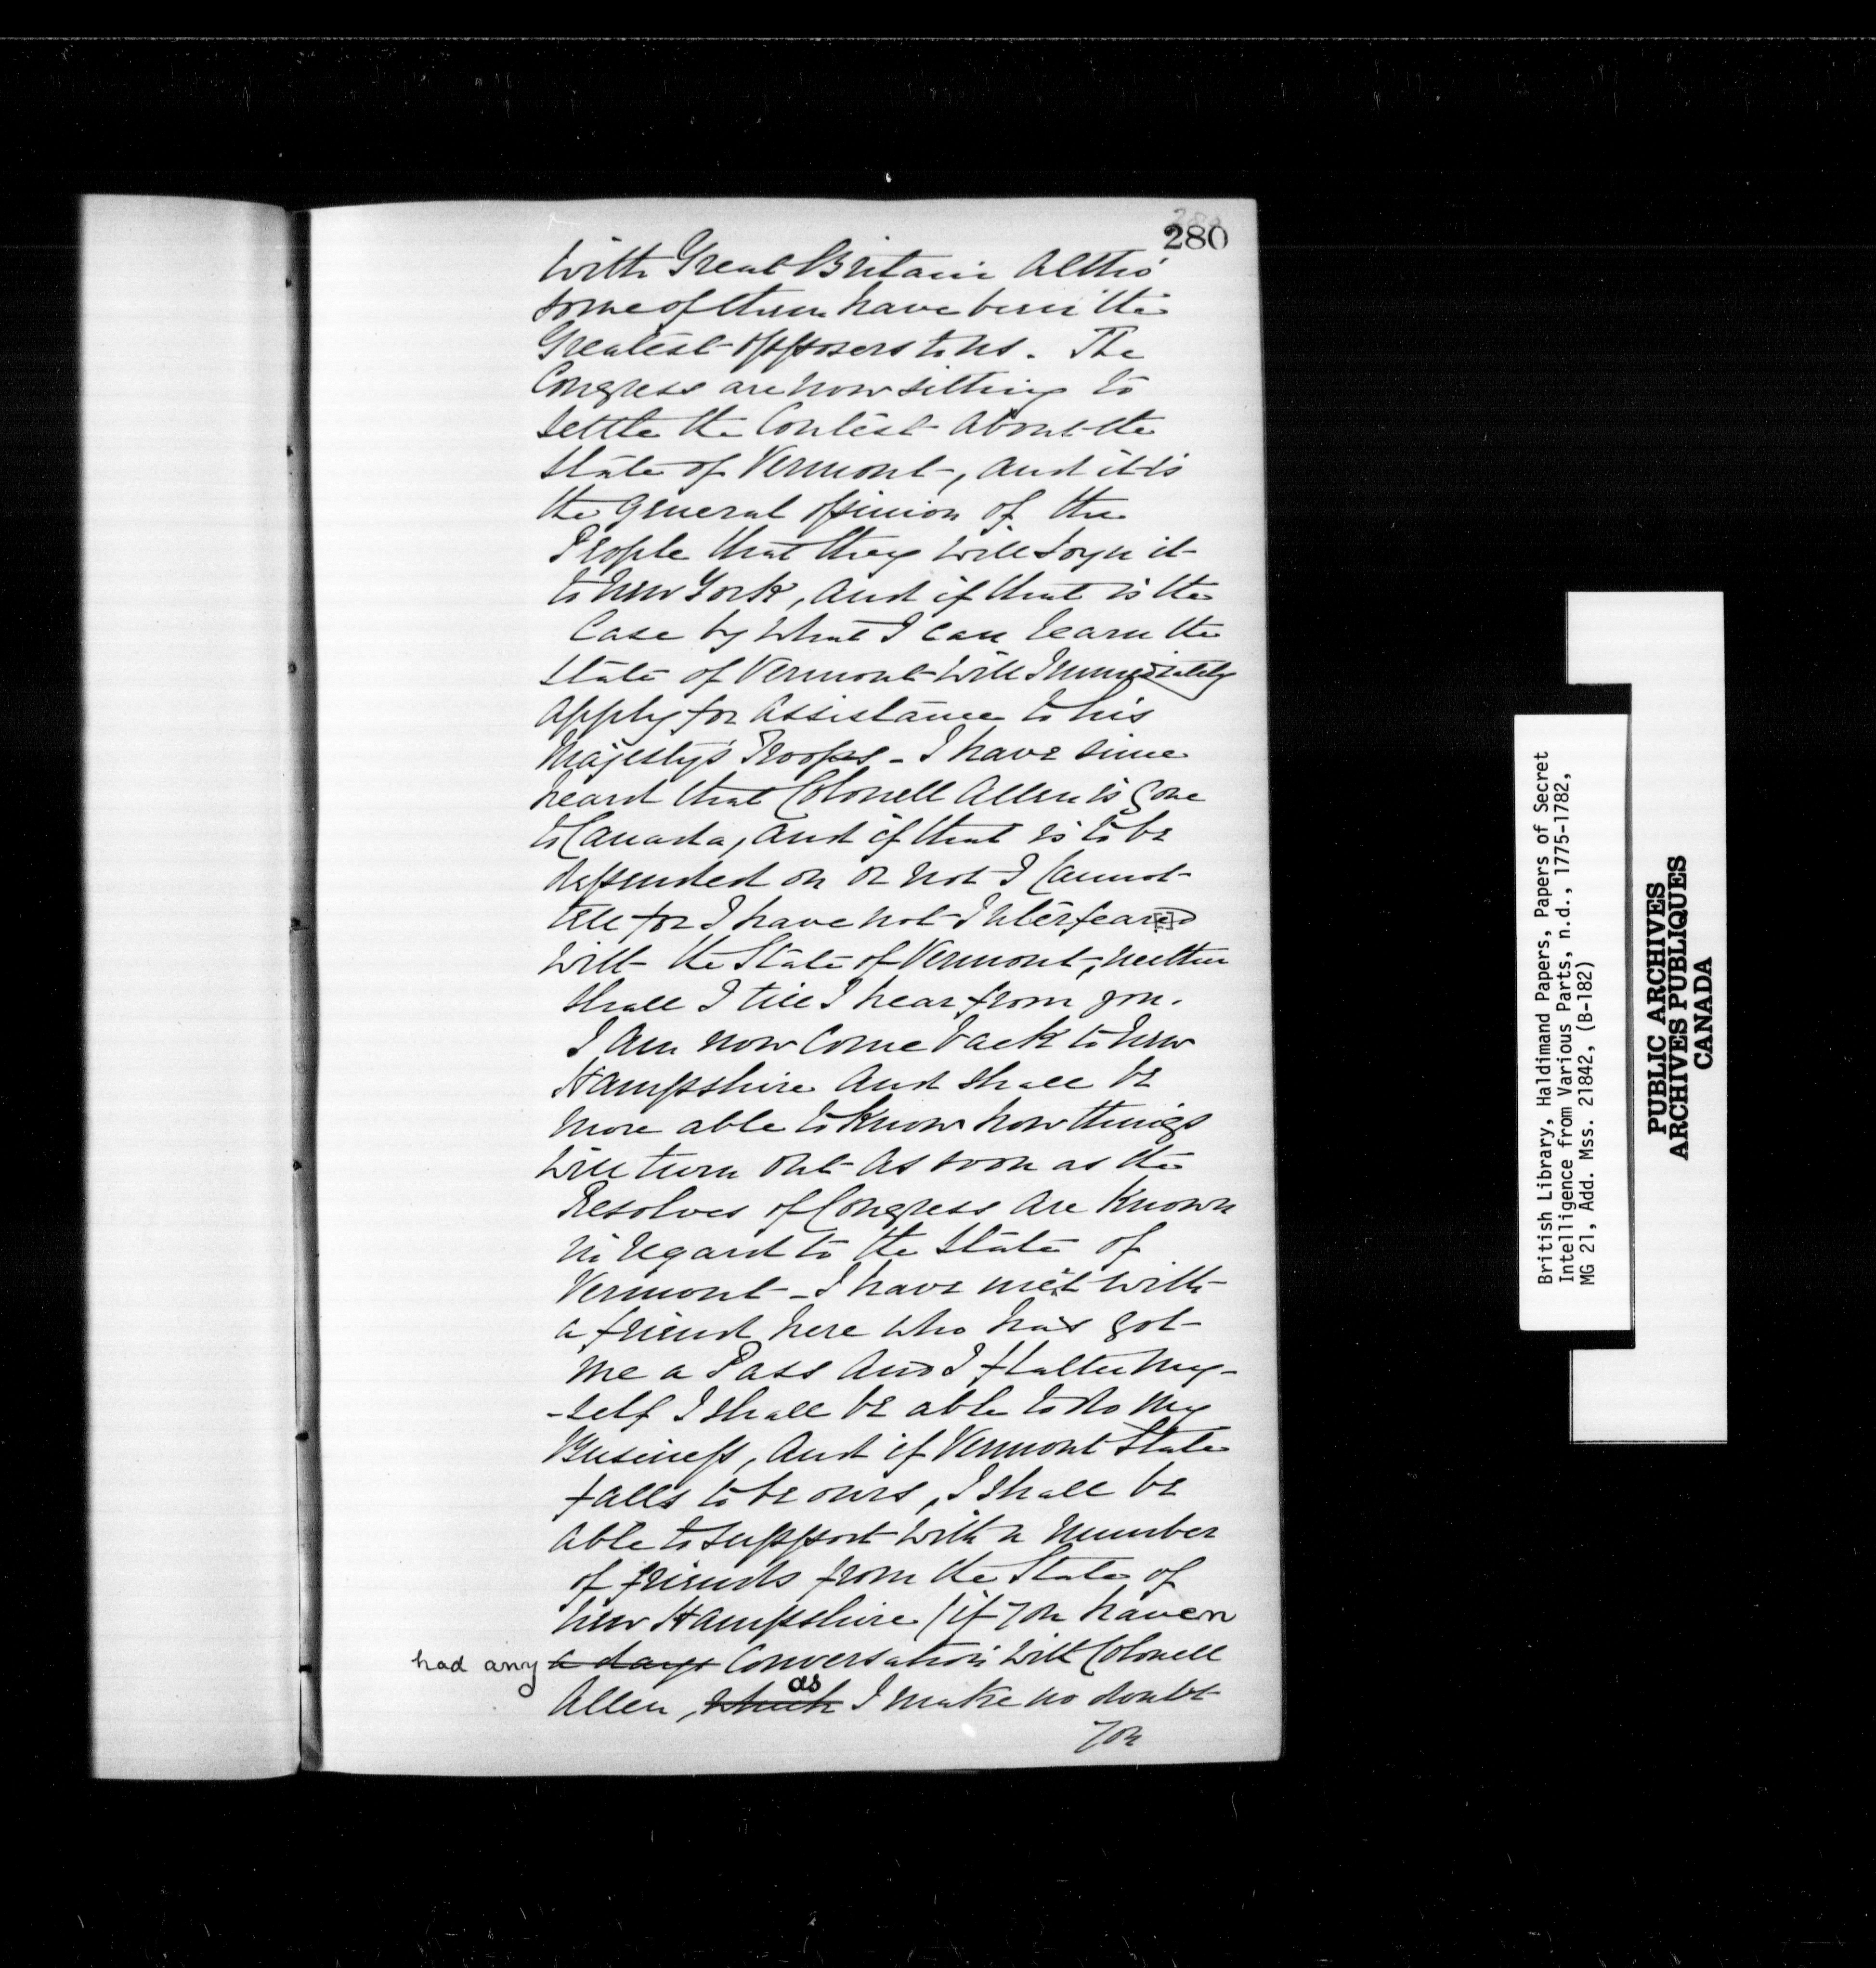 280
With Great Britain Altho'
some of them have been the
Greatest opposers to us. The
Congress are now sitting to
settle the Contest about the
State of Vermont, and it is
the general opinion of the
People that they will Joyn it
to New York, and if that is the
Case by what I can learn the
State of Vermont will Immediately
apply for assistance to his
Majesty's Troops - I have since
heard that Colonell Allen is gone
to Canada, and if that is to be
depended on or not I Cannot
tell for I have not Interfeared
with the State of Vermont, neither
shall I till I hear from you.
I am now come back to New
Hampshire and shall be
more able to know how things
will turn out as soon as the
Resolves of Congress are known
in regard to the State of
Vermont - I have met with
a friend here who has got
me a Pass and I flatter my-
-self I shall be able to do my
Business, and if Vermont State
falls to be ours, I shall be
able to support with a number
of friends from the State of
New Hampshire (if you have
had any a days Conversation with Colonell
as
Allen, which I make no doubt
you
British Library, Haldimand Papers, Papers of Secret
Intelligence from Various Parts, n.d., 1775-1782,
MG 21, Add. Mss. 21842, (B-182)
PUBLIC ARCHIVES
ARCHIVES PUBLIQUES
CANADA